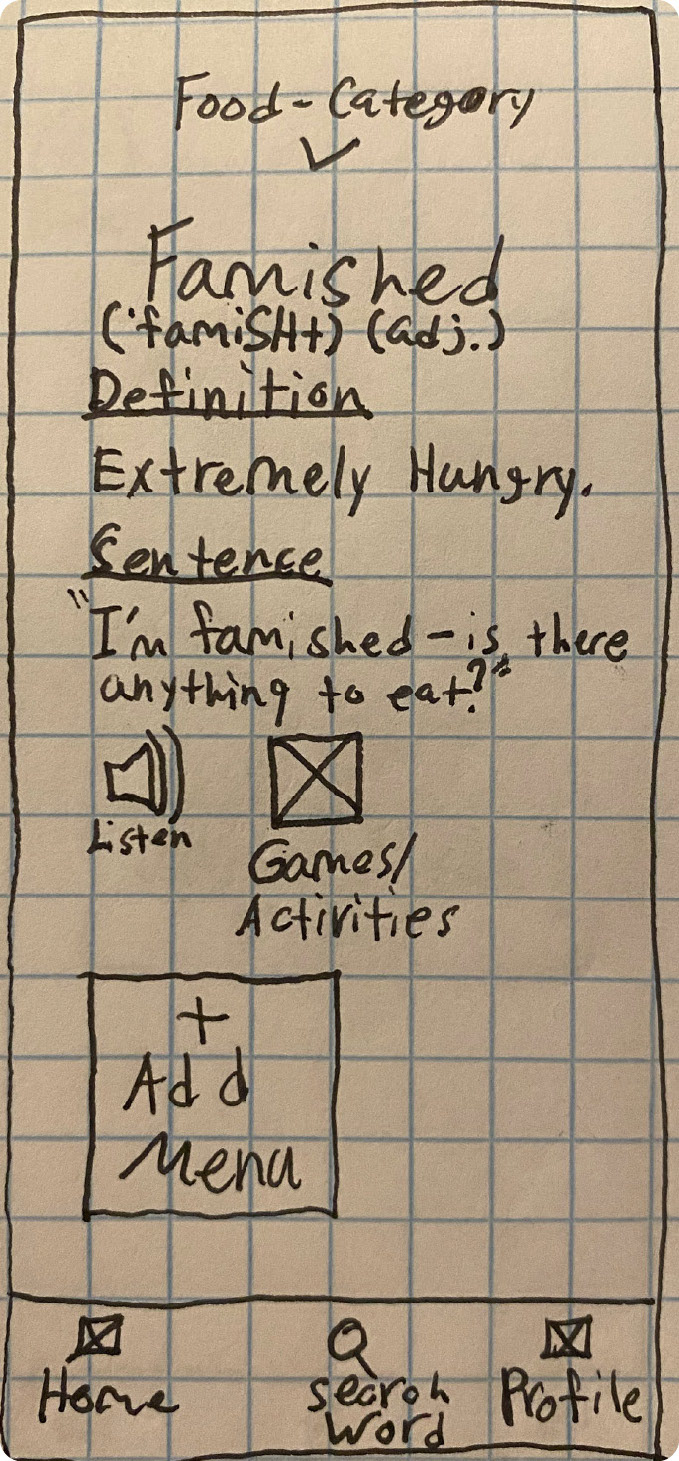 Food - Category
Famished
('famiSHt) (adj.)
Definition
Extremely Hungry.
Sentence
"I'm famished - is there
anything to eat?"
Listen
Games/
Activities
+
Add
Menu
Home
search
word
Profile